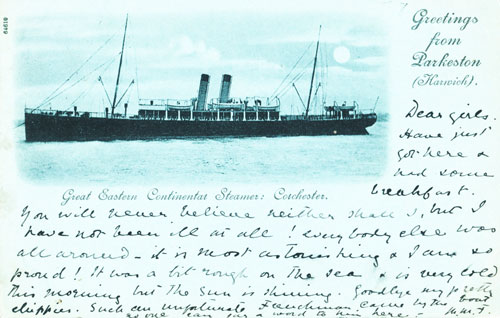 Greetings
from
Parkeston
(Harwich).
Dear girls.
Have just
got here &
had some
breakfast.
Great Eastern Continental Steamer: Colchester.
You will never believe neither shall I, but I
have not been ill at all! Everybody else was
all around - it is most astonishing & I am so
proud! It was a bit rough on the sea & is very cold
This morning but the sun is shining. Goodbye my pretty
chippies. Such an unfortunate Frenchman came by this boat
no one can say a word to him here -